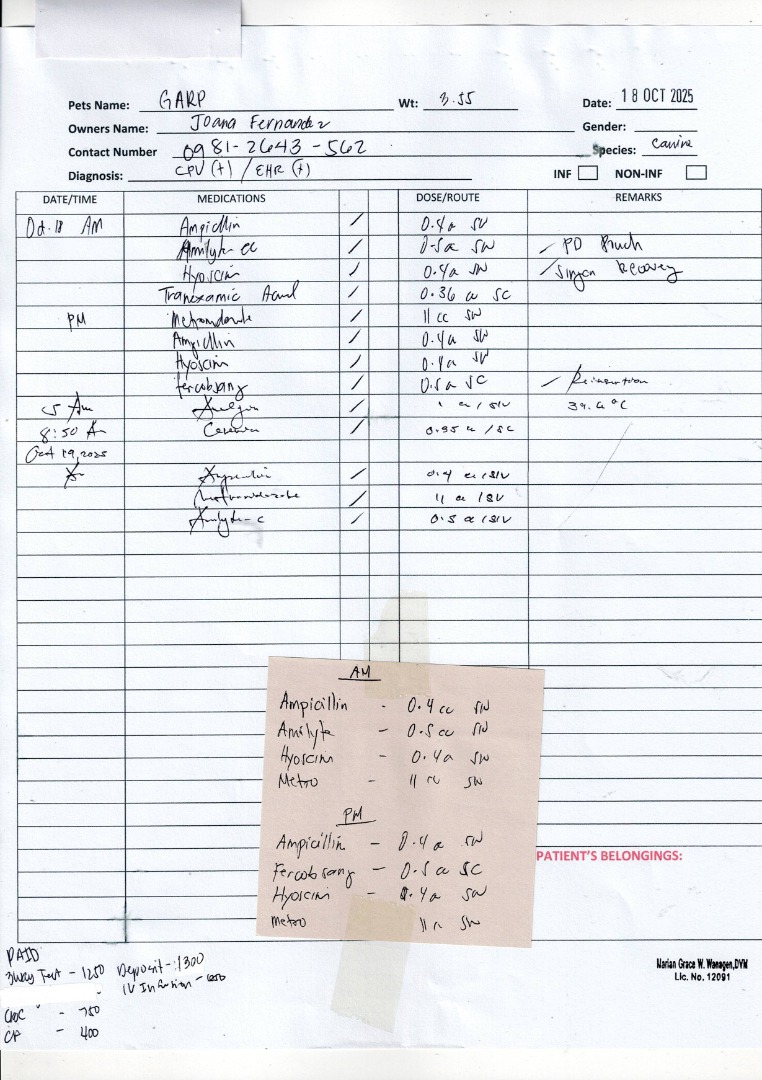 Pets Name: GARP Wt: 3.55 Date: 18 OCT 2025
Owners Name: Joana Fernandez Gender:
Contact Number 0981-2643-562 Species: Canine
Diagnosis: CPV (+) / EHR (+) INF NON-INF
DATE/TIME MEDICATIONS DOSE/ROUTE REMARKS
Oct. 18 AM Ampicillin / 0.4cc SIV
Amilyte-C / 0.5cc SIV ✓ PD
Hyoscin / 0.4cc SIV ✓ Recovery
Tranexamic Acid / 0.36 cc SC
PM Metronidazole / 11 cc SIV
Ampicillin / 0.4cc SIV
Hyoscin / 0.4cc SIV
Fercobsang / 0.5cc SC ✓ Reinsertion
5 AM / cc / SIV
8:50 A Cerenia / cc / SC
Oct 19, 2025
Ampicillin / 0.4 cc / SIV
Metronidazole / 11 cc / SIV
Amilyte-C / 0.5 cc / SIV
AM
Ampicillin - 0.4 cc SIV
Amilyte - 0.5 cc SIV
Hyoscin - 0.4cc SIV
Metro - 11 cc SIV
PM
Ampicillin - 0.4 cc SIV
Fercobsang - 0.5 cc SC
Hyoscin - 0.4cc SIV
Metro 11 cc SIV
PATIENT'S BELONGINGS:
PAID
3way Test - 1250 Deposit - 1300
IV Infusion -
CBC - 750
CP - 400
Marian Grace W. Wanagen, DVM
Lic. No. 12091